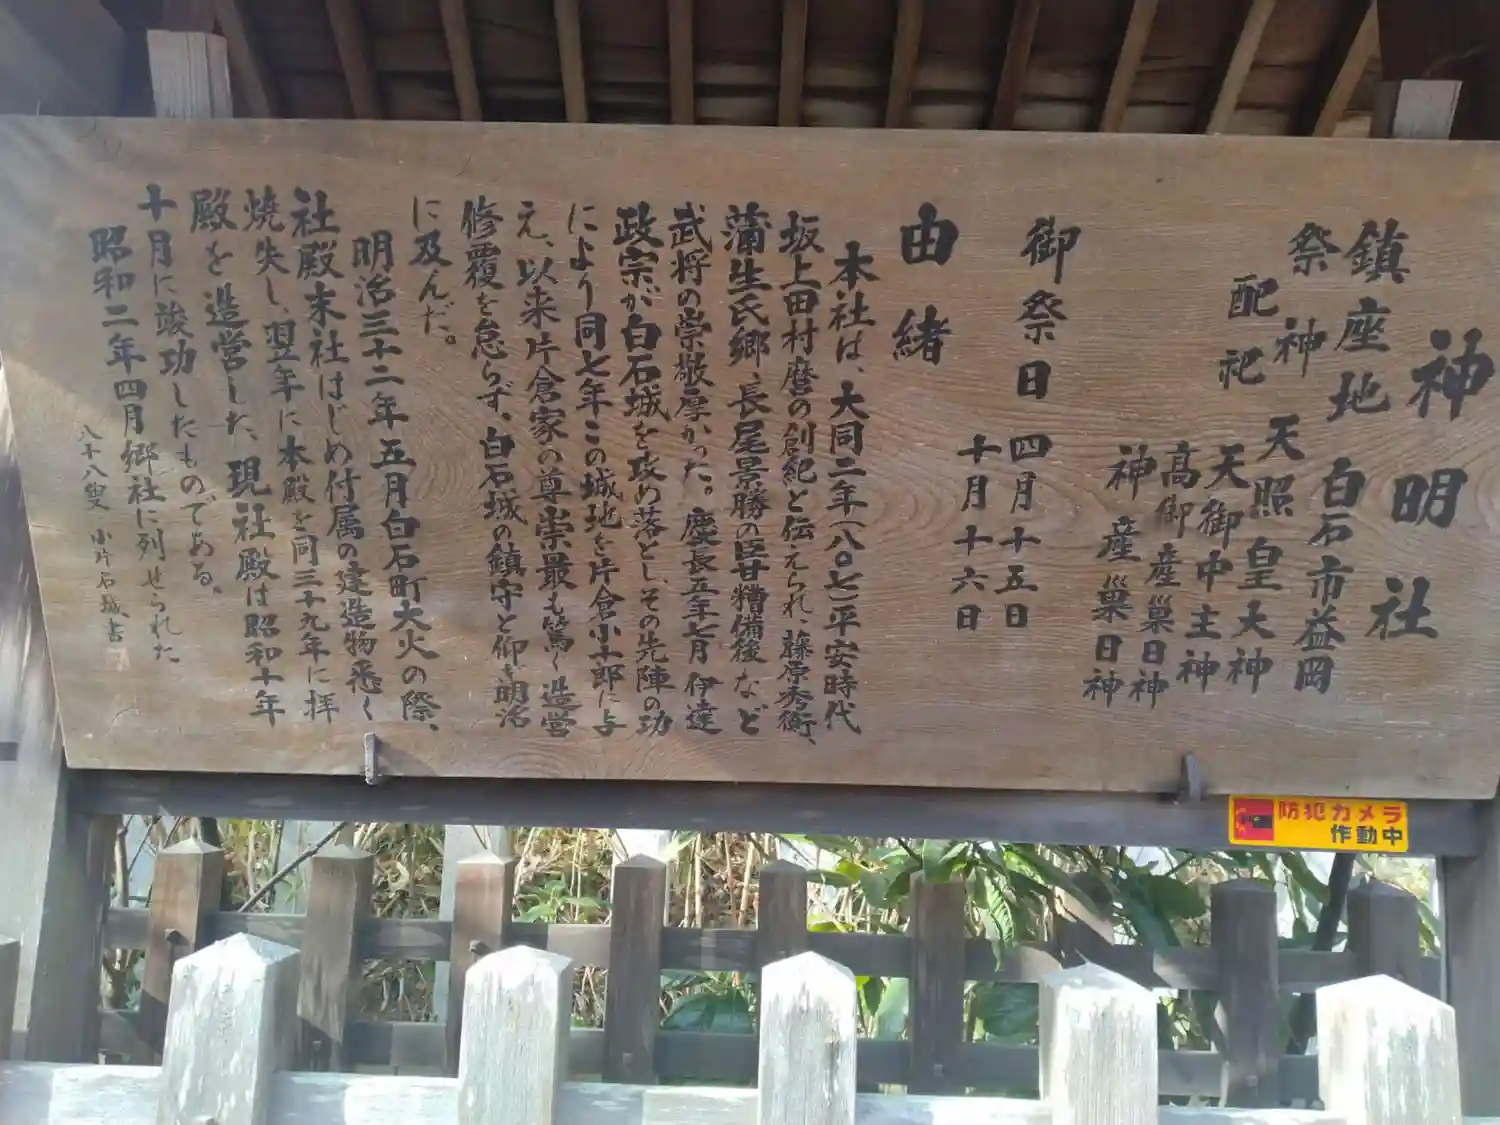 神明社
鎮座地 白石市益岡
祭神 天照皇大神
配祀 天御中主神
高御産巣日神
神産巣日神
御祭日 四月十五日
十月十六日
由緒
本社は、大同二年(八〇七)平安時代
坂上田村麿の創紀と伝えられ、藤原秀衡、
蒲生氏郷、長尾景勝の臣甘糟備後など
武将の崇敬厚かった。慶長五年七月伊達
政宗が白石城を攻め落とし、その先陣の功
により同七年この城地を片倉小十郎に与
え、以来片倉家の尊崇最も篤く造営
修覆を怠らず、白石城の鎮守と仰ぎ明治
に及んだ。
明治三十二年五月白石町大火の際、
社殿末社はじめ付属の建造物悉く
焼失し、翌年に本殿を同三十九年に拝
殿を造営した、現社殿は昭和十年
十月に竣功したものである。
昭和二年四月郷社に列せられた
八十八叟 小片石城書
防犯カメラ
作動中